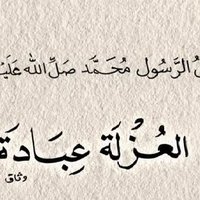 الرَّسُول مُحَمَّد صَلَّى اللّٰه عَلَيْ
العُزْلَة عِبَادَة
وثاق